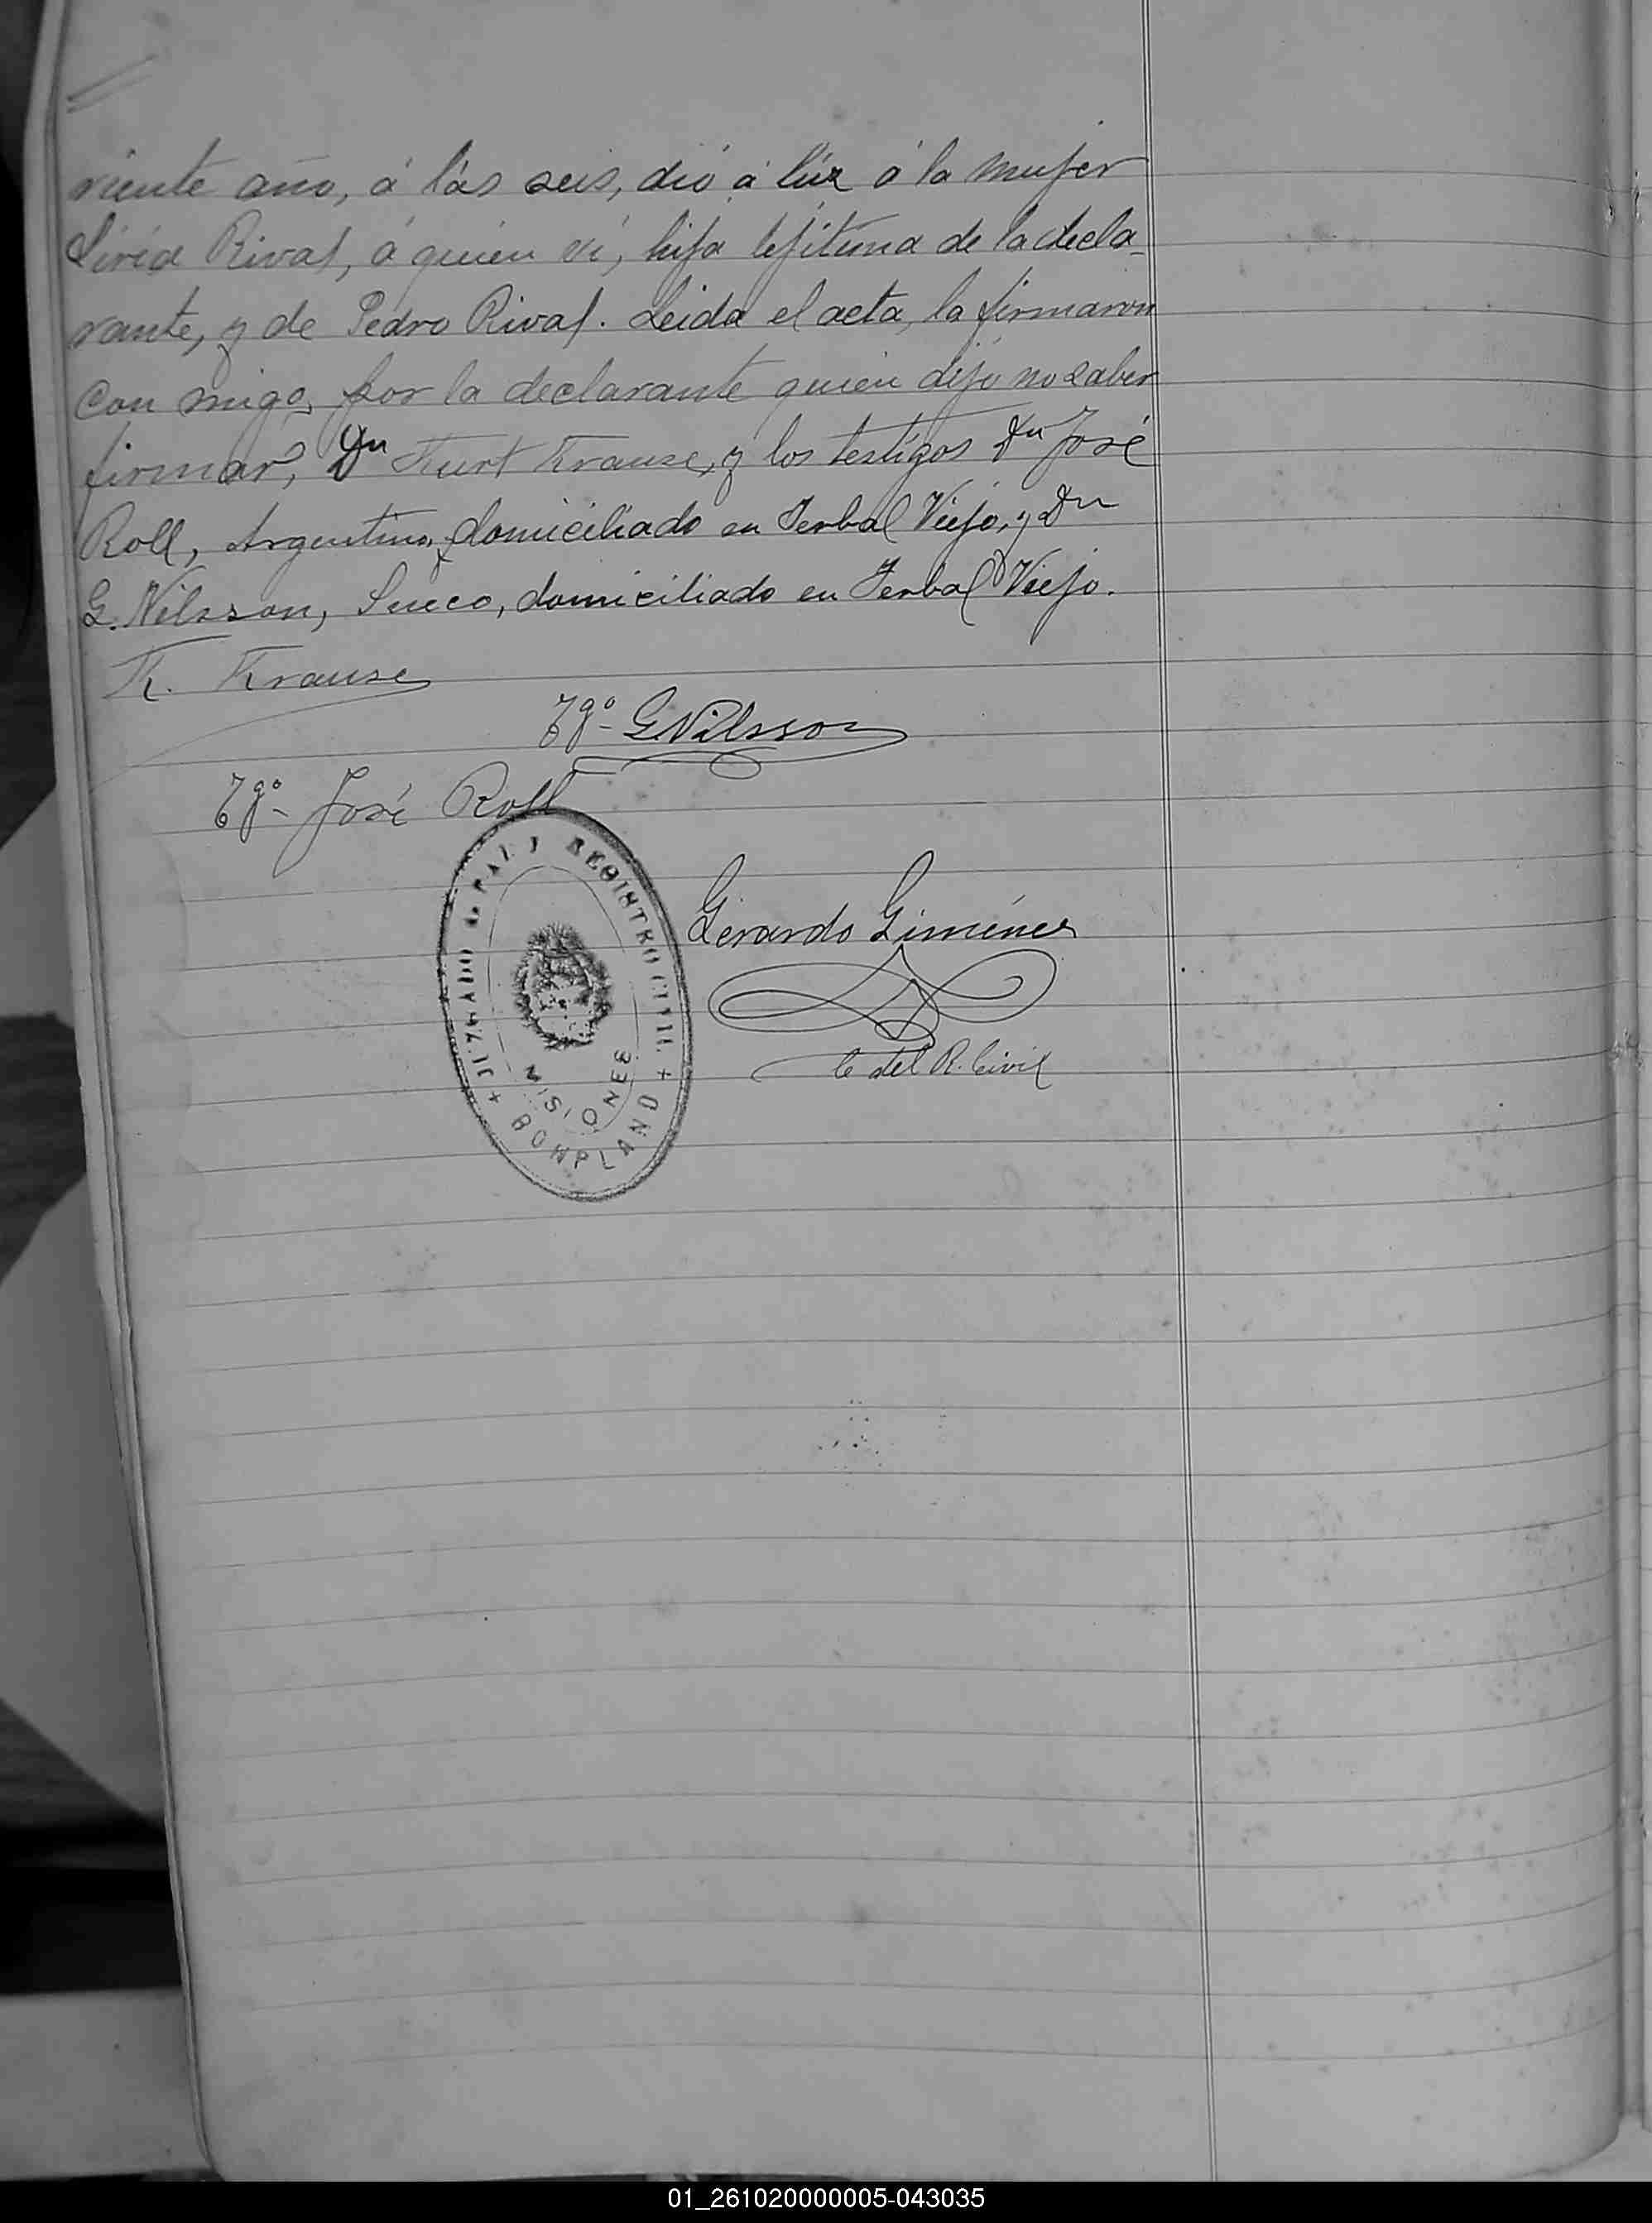 rriente año, á las seis, dió á lúz á la mujer
Liria Rival, á quien ví, hija lejitima de la decla-
rante, y de Pedro Rival. Leida el acta, la firmaron
con migo, por la declarante quien dijo no saber
firmar, Dn Kurt Krause, y los testigos Dn José
Roll, Argentino, domiciliado en Yerbal Viejo, y Dn
G. Nilsson, Sueco, domiciliado en Yerbal Viejo.
K. Krause
Tgo- G Nilsson
Tgo- José Roll
JUZGADO de PAZ Y REGISTRO CIVIL
MISIONES
+ BONPLAND +
Gerardo Giménez
E del R. Civil
01_261020000005-043035